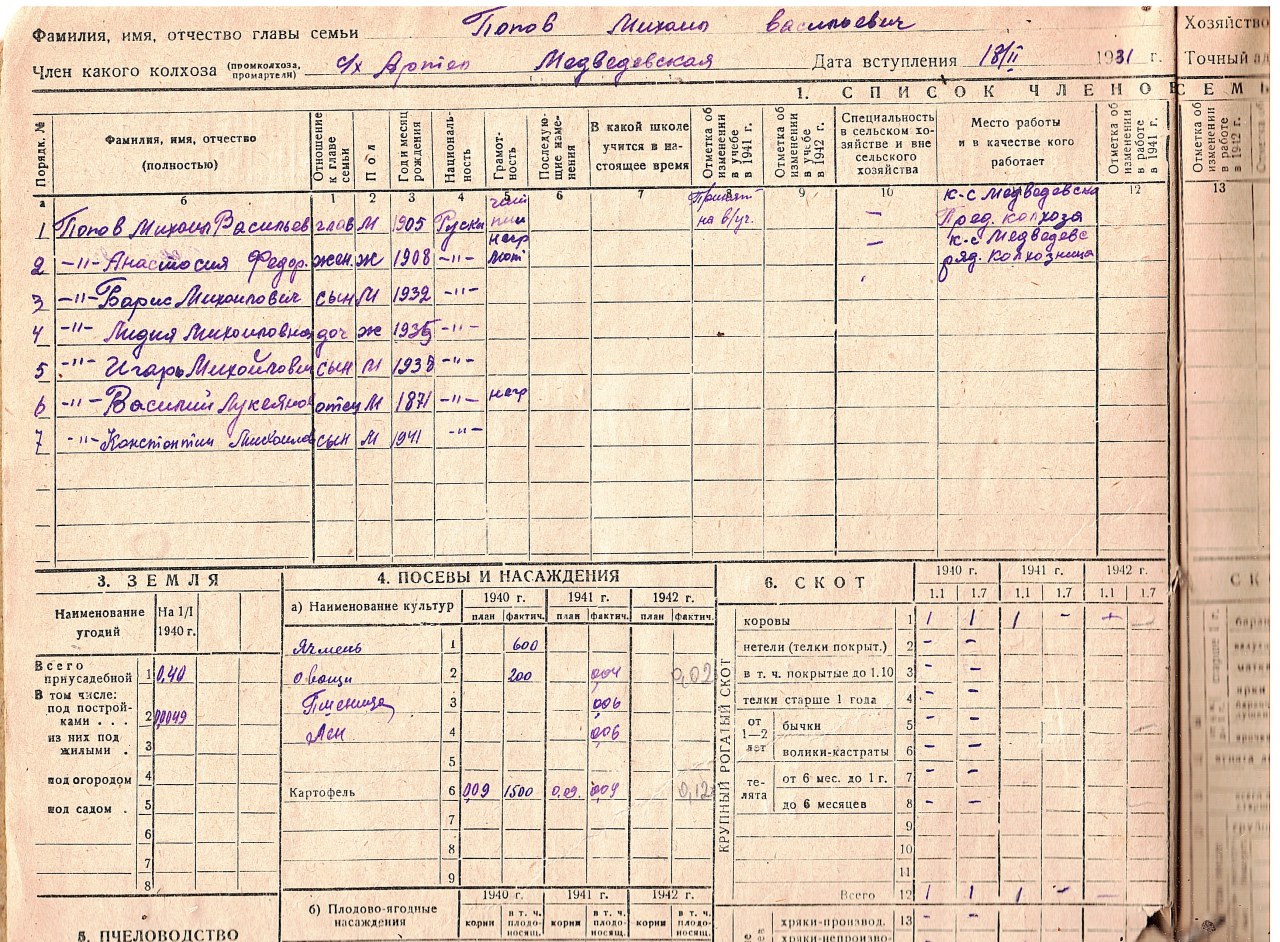 Фамилия, имя, отчество главы семьи Попов Михаил Васильевич
Член какого колхоза (промколхоза, промартели) с/х Артел Медведевская Дата вступления 18/II 1931 г.
Хозяйство
Точный
1. СПИСОК ЧЛЕНОВ СЕМЬ
Порядк. №
Фамилия, имя, отчество (полностью)
Отношение к главе семьи
Пол
Год и месяц рождения
Националь-ность
Грамот-ность
Последую-щие изме-нения
В какой школе учится в на-стоящее время
Отметка об изменении в учебе в 1941 г.
Отметка об изменении в учебе в 1942 г.
Специальность в сельском хо-зяйстве и вне сельского хозяйства
Место работы и в качестве кого работает
Отметка об изменении в работе в 1941 г.
Отметка об изменении в работе в 1942 г.
а б 1 2 3 4 5 6 7 8 9 10 11 12 13
1 Попов Михаил Васильев глав М 1905 Руски на в/уч. – к-с Медведевска Пред. колхоза
2 -"- Анастасия Федор. жен. ж 1908 -"- негр – к-с Медведевс ряд. колхозница
3 -"- Барис Михаилович сын М 1932 -"-
4 -"- Лидия Михаиловна доч ж 1935 -"-
5 -"- Игарь Михайлови сын М 1938 -"-
6 -"- Василий Лукеянов отец М 1871 -"- негр
7 -"- Константин Михаилов сын М 1941 -"-
3. ЗЕМЛЯ
Наименование угодий
На 1/I 1940 г.
Всего приусадебной 1 0,40
В том числе:
под построй-ками . . . 2 0,0049
из них под жилыми . 3
под огородом 4
под садом . 5
6
7
8
5. ПЧЕЛОВОДСТВО
4. ПОСЕВЫ И НАСАЖДЕНИЯ
а) Наименование культур
1940 г. 1941 г. 1942 г.
план фактич. план фактич. план фактич.
Ячмень 1 600
овощи 2 200 004 0,02
Пшеница 3 006
4 006
5
Картофель 6 009 1500 0,09. 009 0,12
7
8
9
б) Плодово-ягодные насаждения
1940 г. 1941 г. 1942 г.
корни в т. ч. плодо-носящ. корни в т. ч. плодо-носящ. корни в т. ч. плодо-носящ.
6. СКОТ
1940 г. 1941 г. 1942 г.
1.1 1.7 1.1 1.7 1.1 1.7
КРУПНЫЙ РОГАТЫЙ СКОТ
коровы 1 1 1 1 – + –
нетели (телки покрыт.) 2 – –
в т. ч. покрытые до 1.10 3 – –
телки старше 1 года 4 – –
от 1—2 лет
бычки 5 – –
волики-кастраты 6 – –
те-лята
от 6 мес. до 1 г. 7 – –
до 6 месяцев 8 – –
9
10
11
Всего 12 1 1 1 – +
хряки-производ. 13 – –
хряки-непроизво-